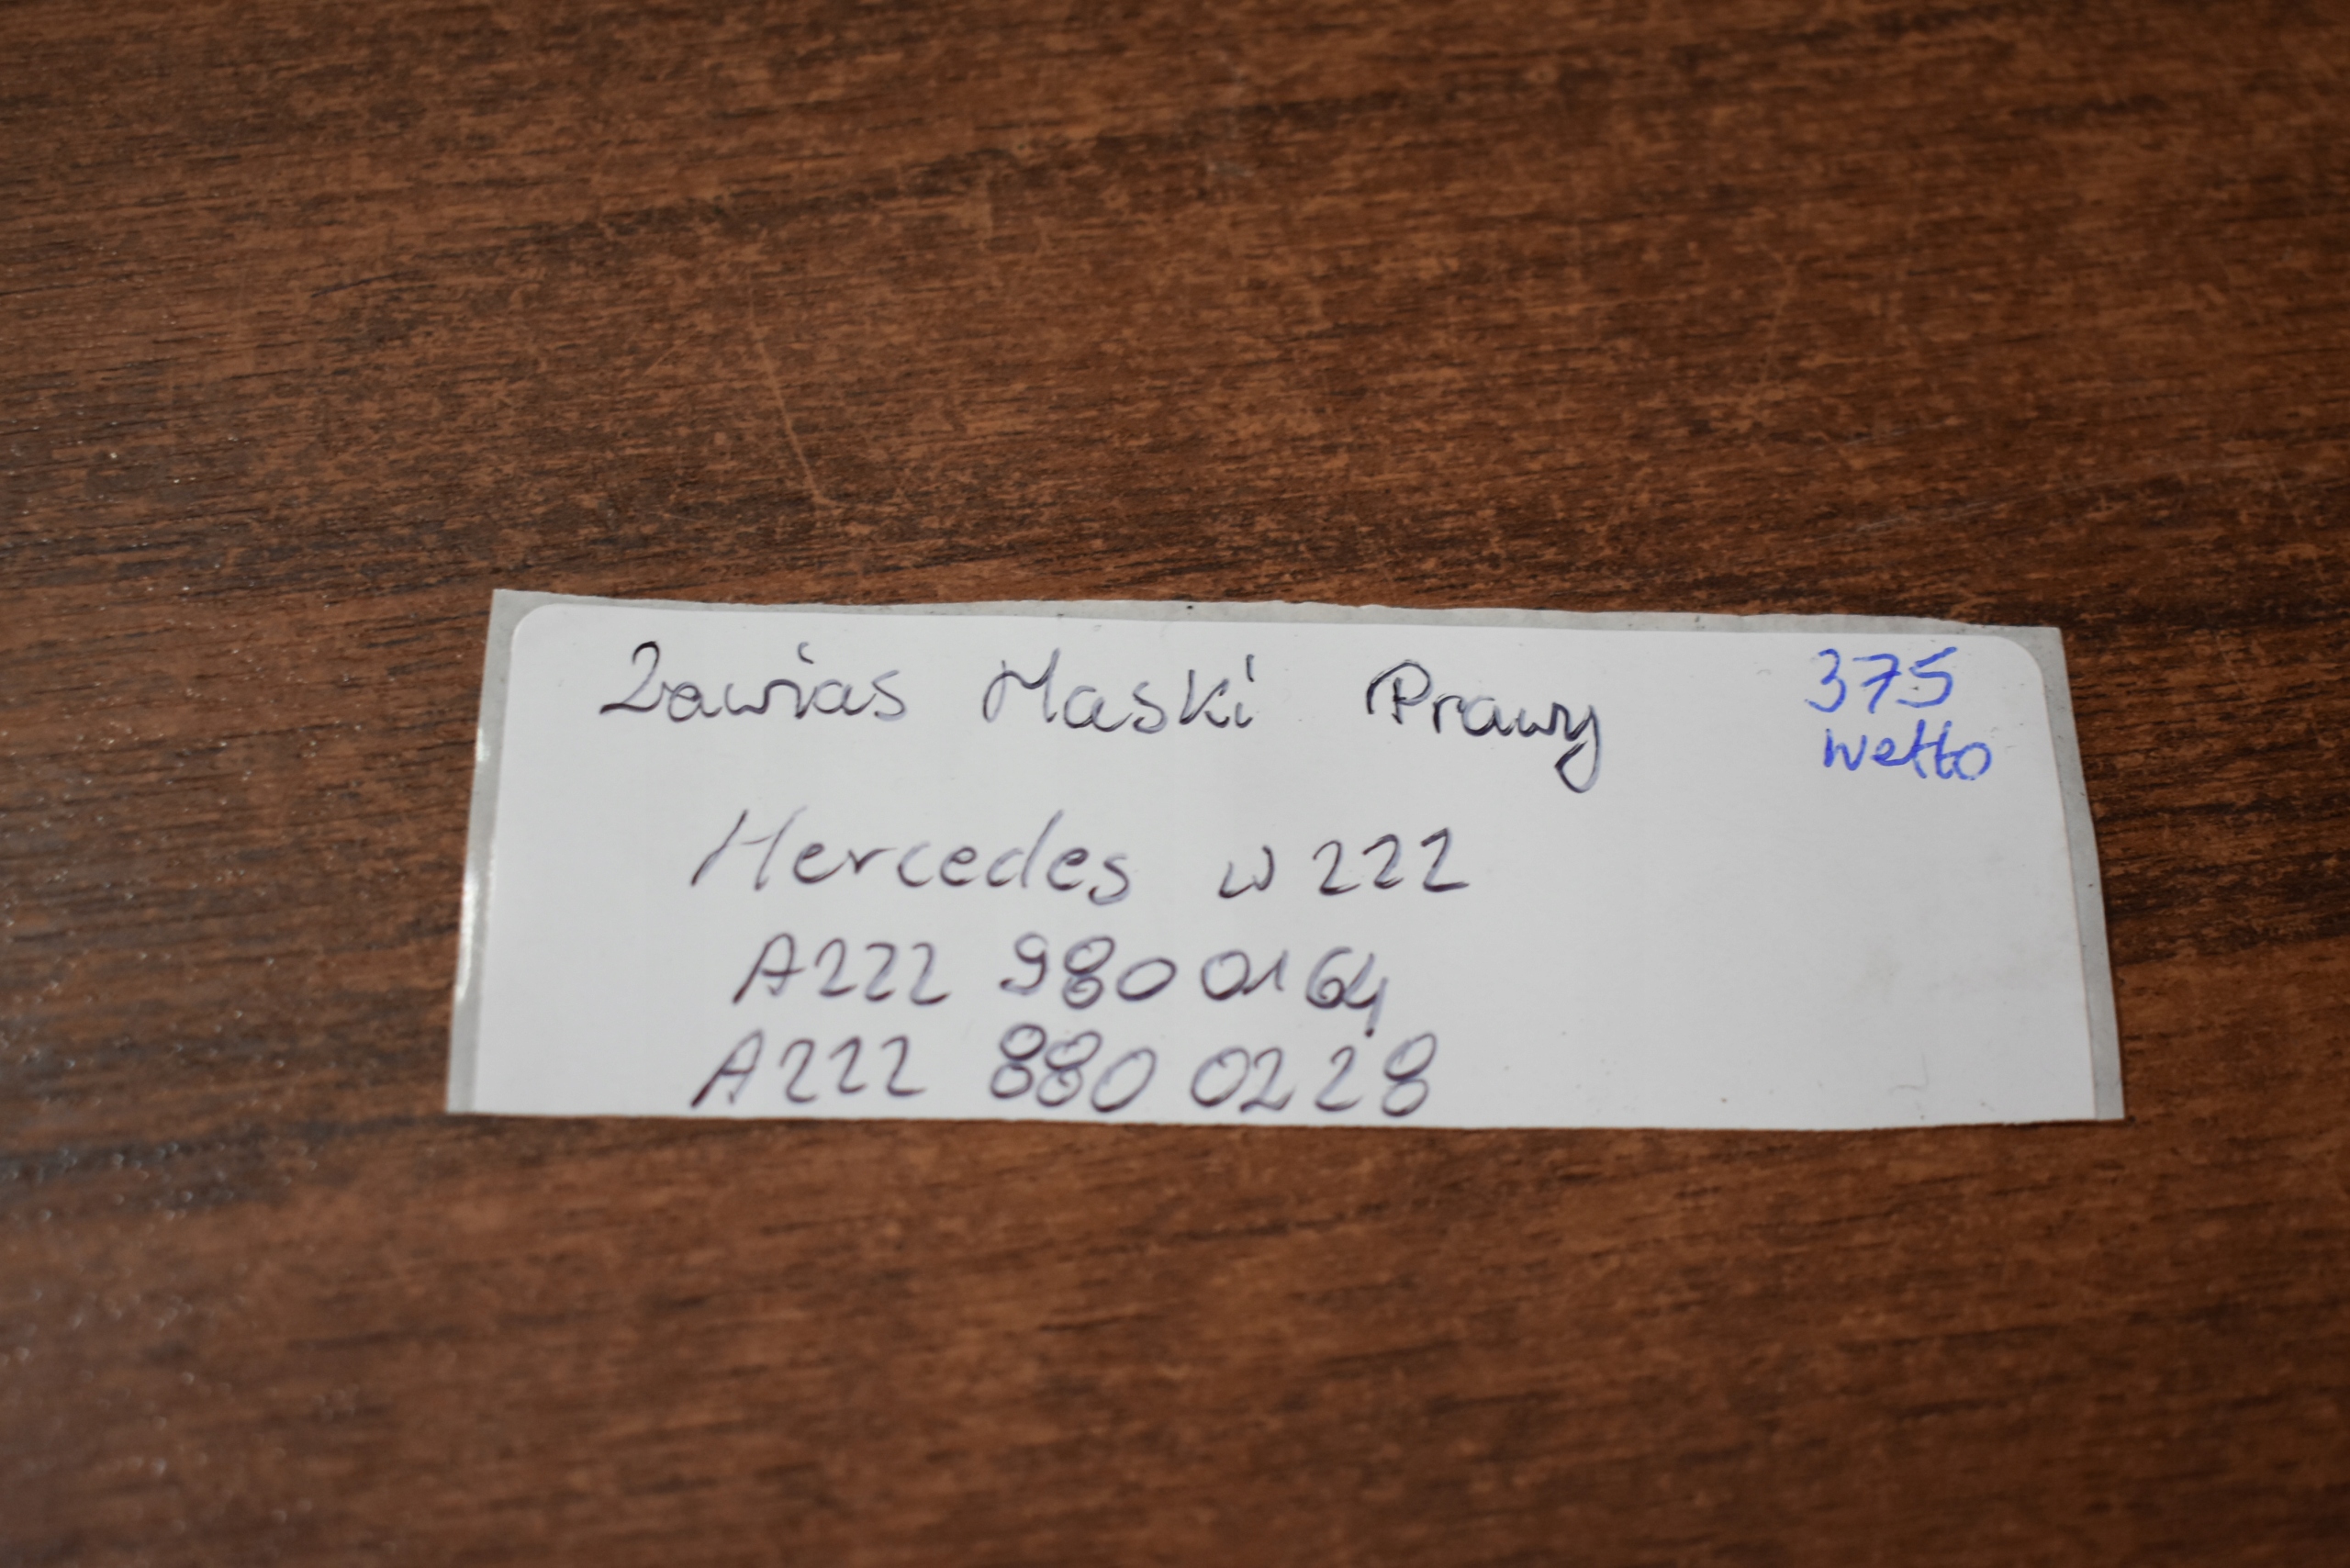 Zawias Maski Prawy
375
netto
Mercedes w222
A222 980 0164
A222 880 0228